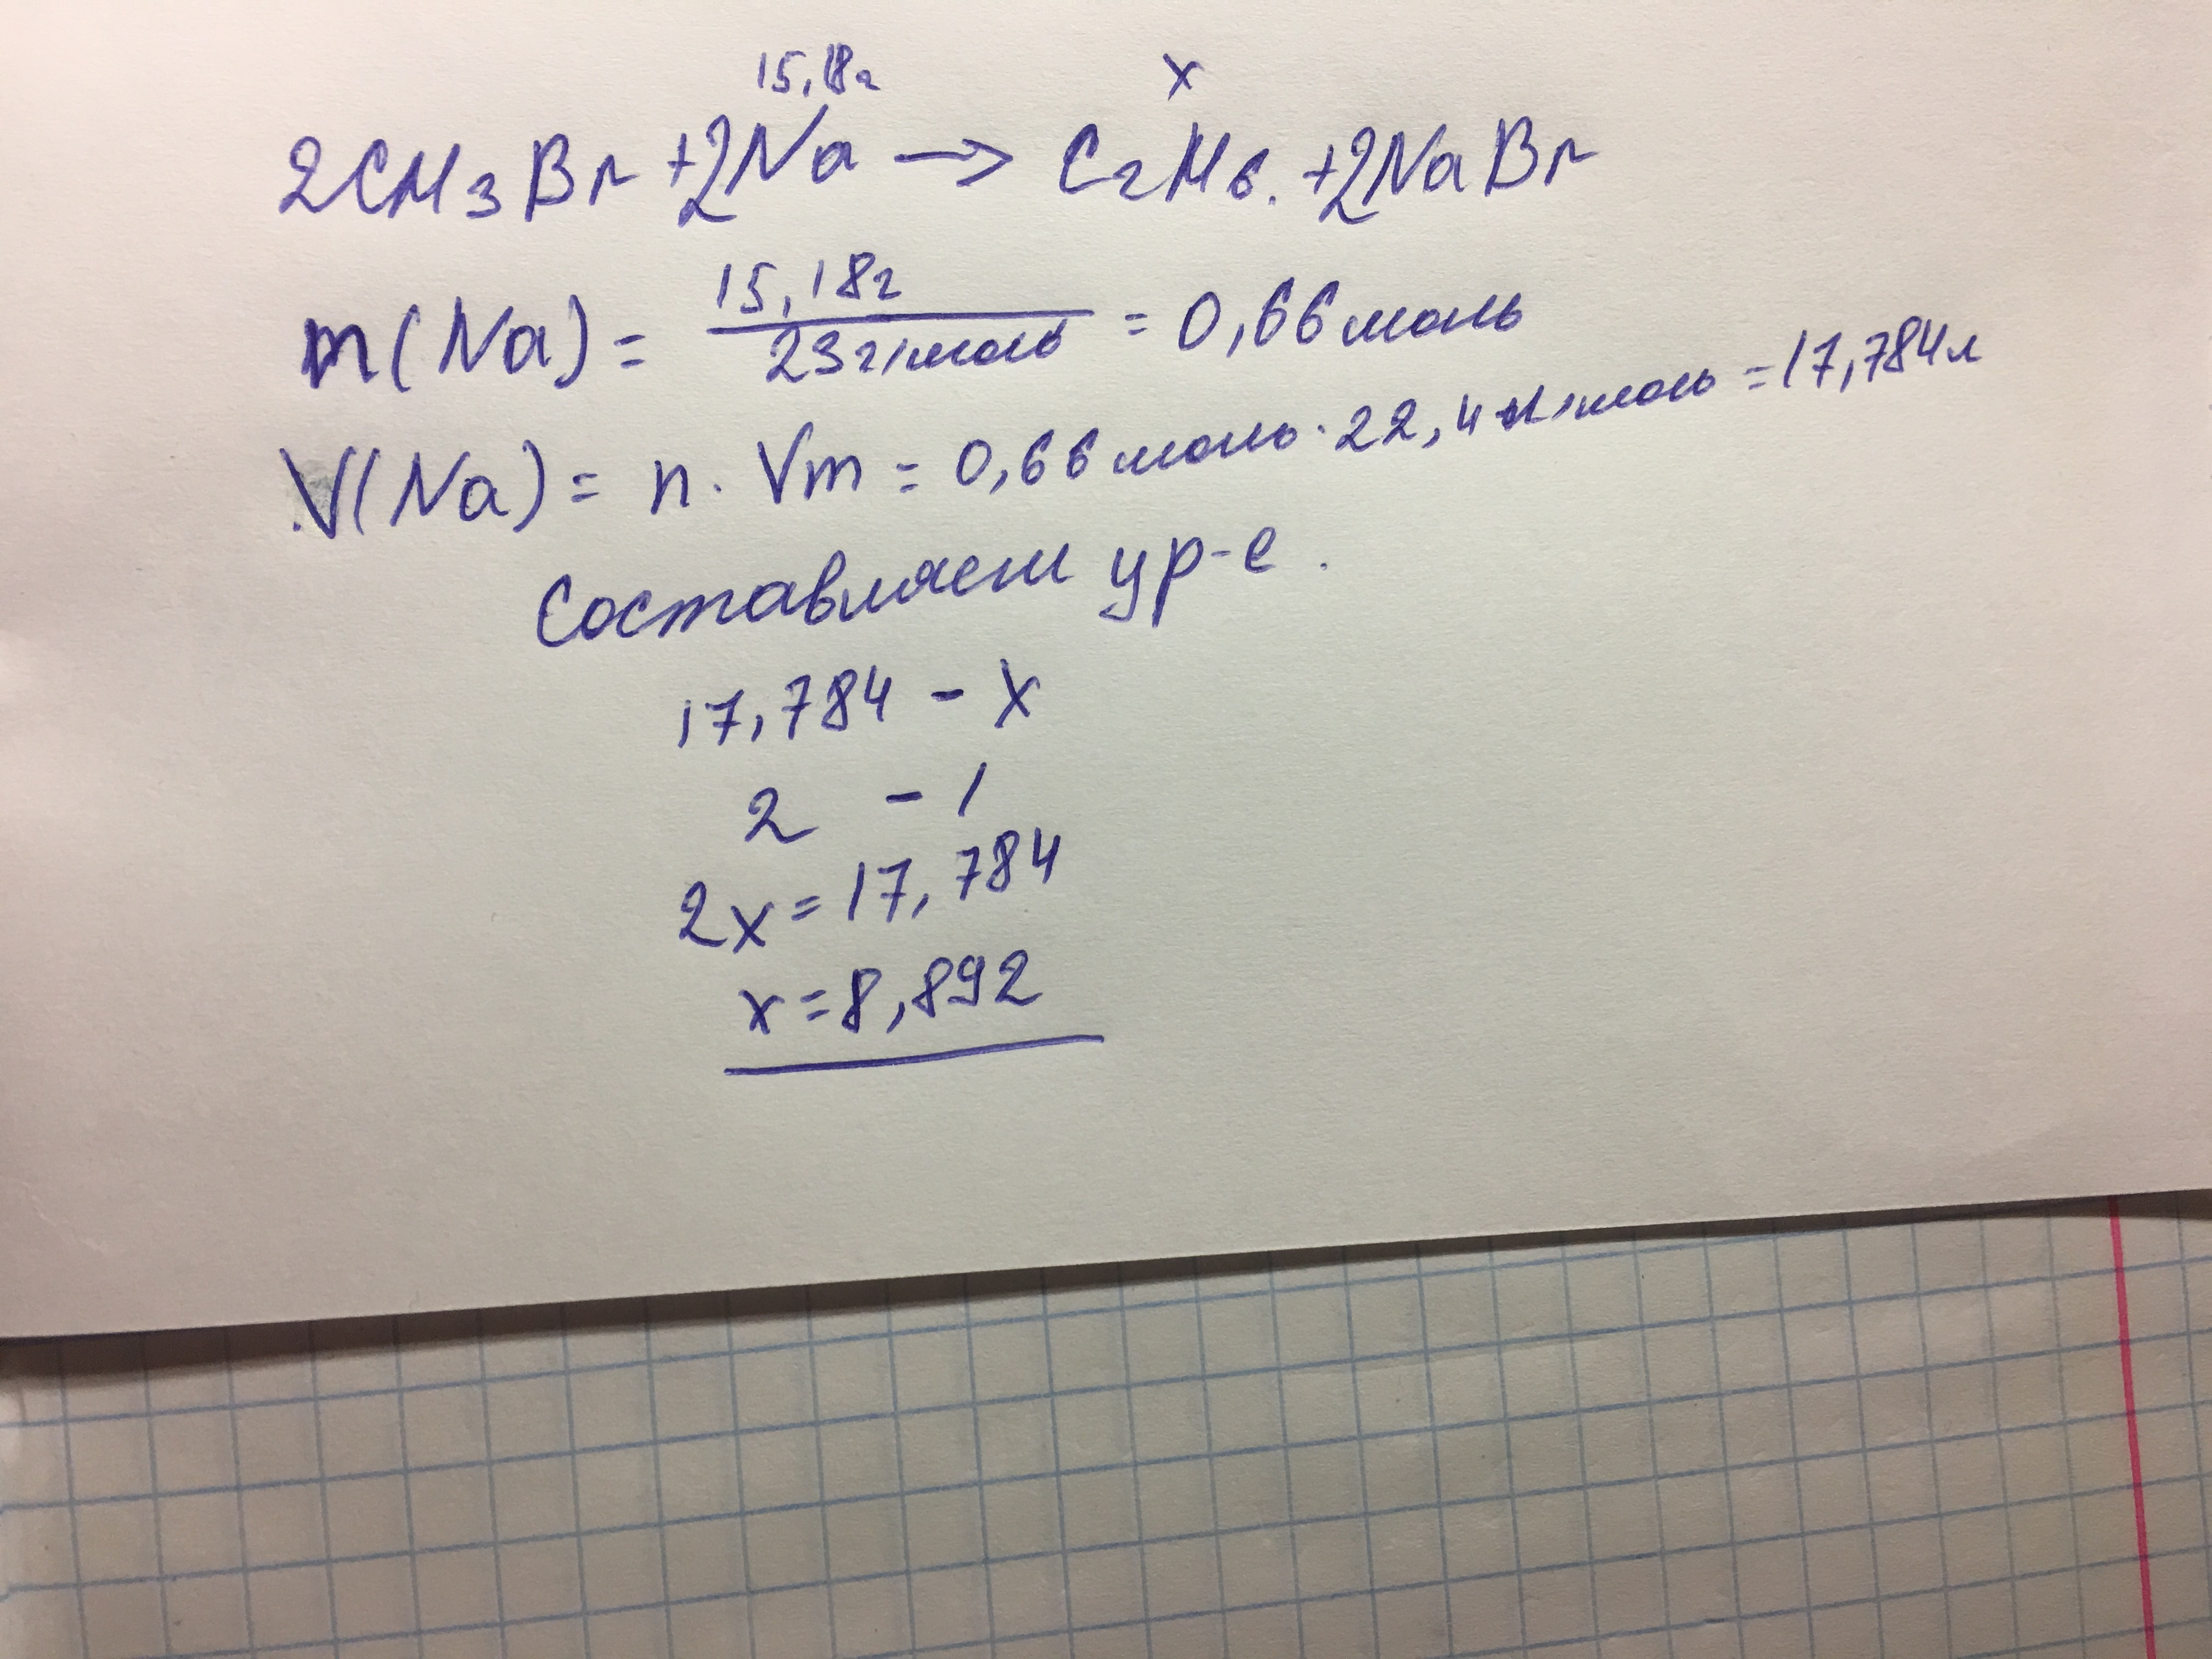 15,18г x
2CH3Br + 2Na → C2H6. + 2NaBr
m(Na) = 15,18г / 23г/моль = 0,66 моль
V(Na) = n · Vm = 0,66 моль · 22,4 л/моль = 17,784л
Составляем ур-е.
17,784 - x
2 - 1
2x = 17,784
x = 8,892